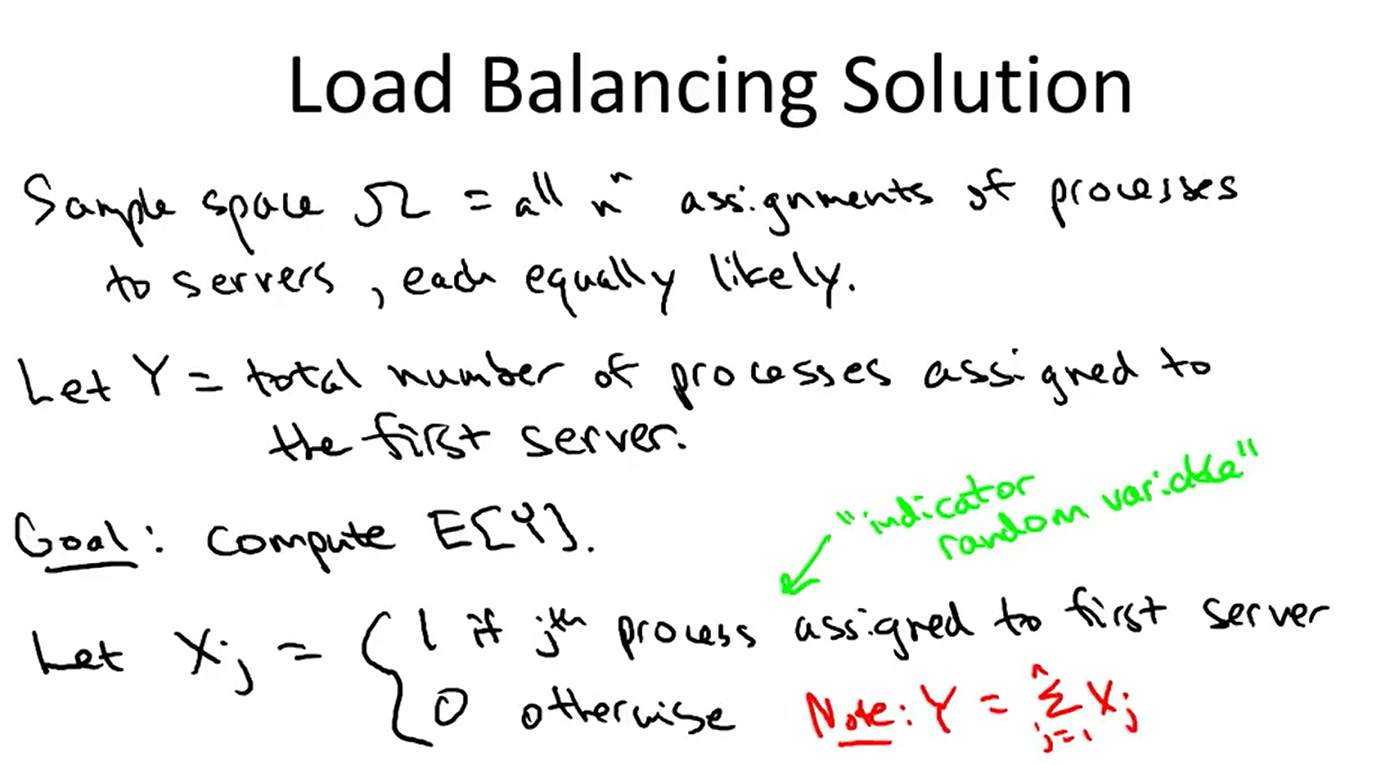 Load Balancing Solution
Sample space Ω = all nⁿ assignments of processes
to servers, each equally likely.
Let Y = total number of processes assigned to
the first server.
Goal: compute E[Y].
"indicator
random variable"
Let Xⱼ = { 1 if jᵗʰ process assigned to first server
0 otherwise
Note: Y = ∑ⁿⱼ₌₁ Xⱼ